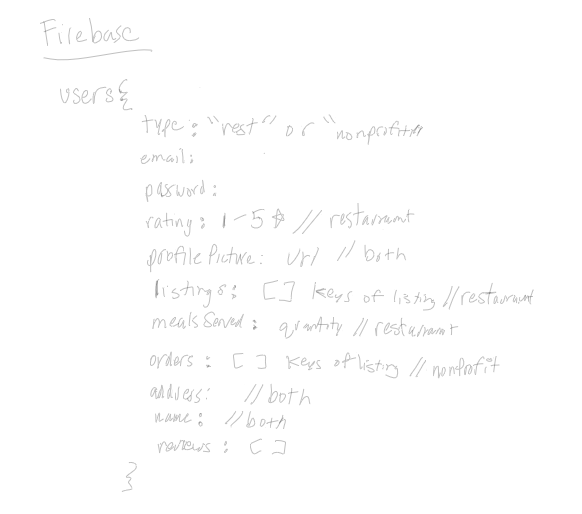 Firebase
users{
type: "rest" or "nonprofit"
email:
password:
rating: 1-5☆ // restaurant
profilePicture: url // both
listings: [] keys of listing // restaurant
mealsServed: quantity // restaurant
orders: [ ] keys of listing // nonprofit
address: // both
name: // both
reviews: []
}